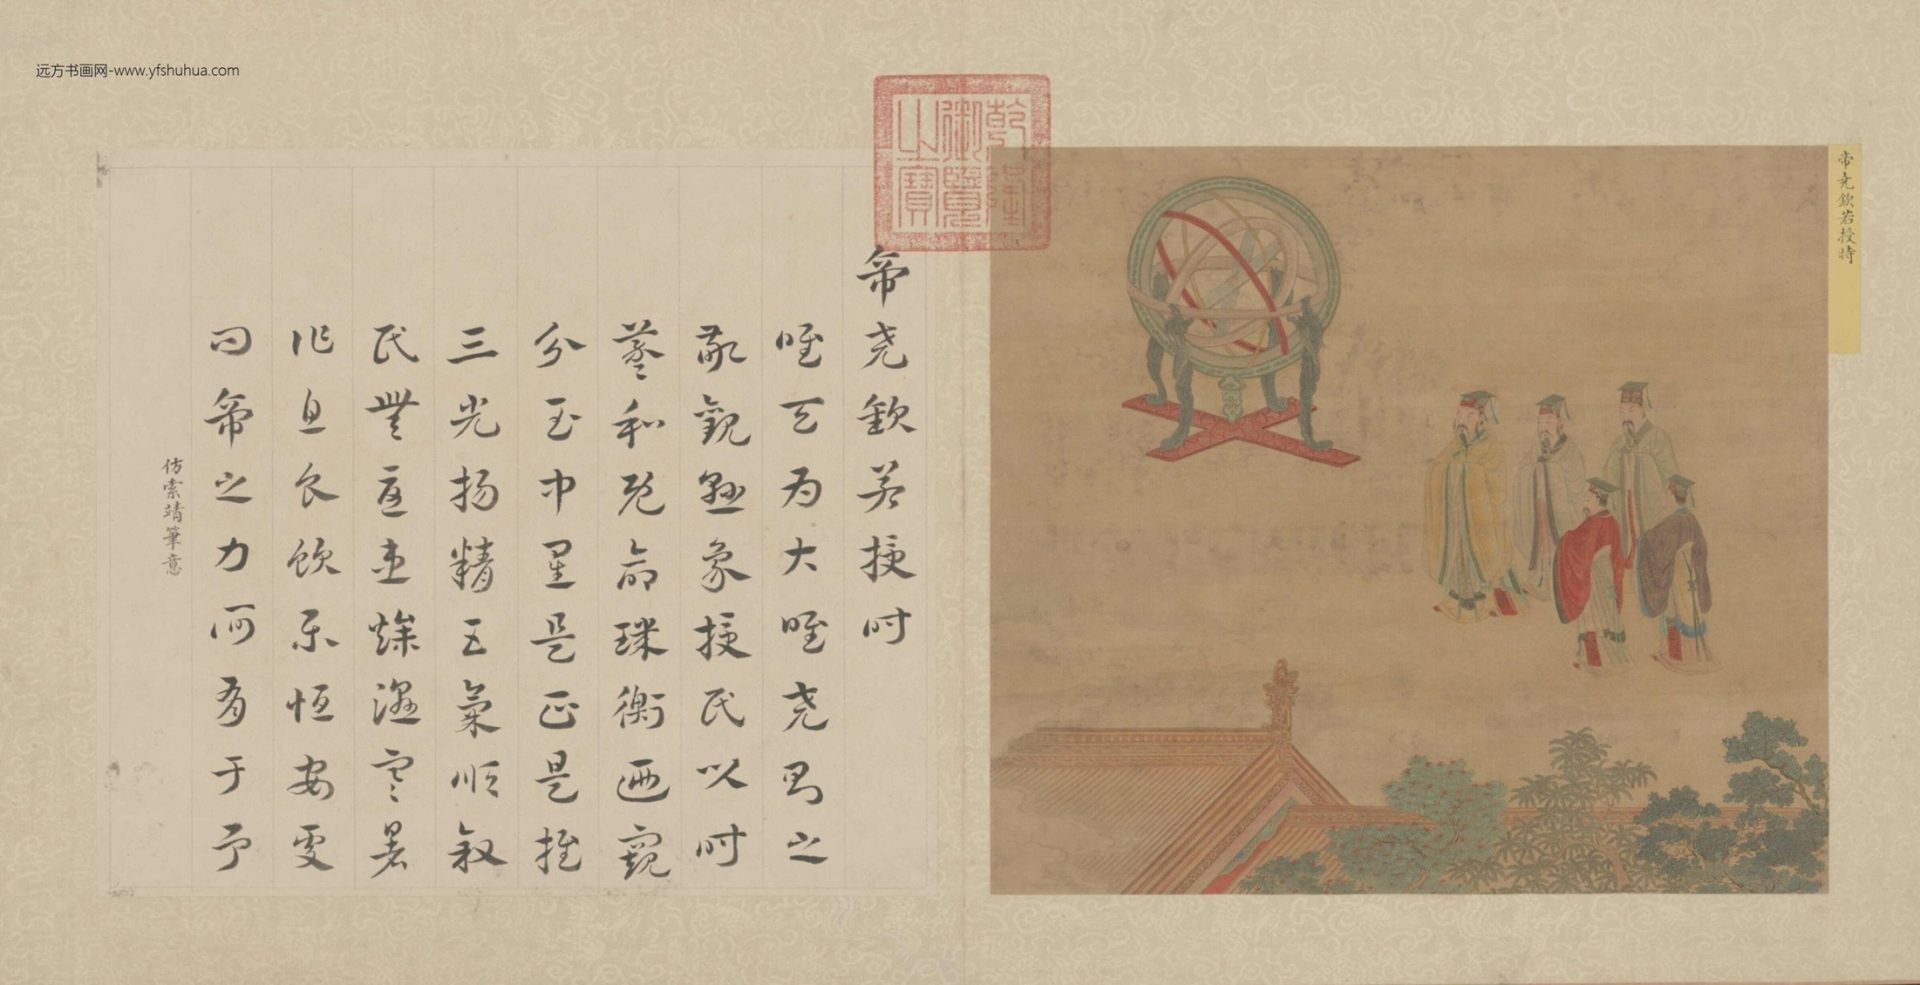 远方书画网-www.yfshuhua.com
乾隆御覽之寶
帝堯欽若授時
帝堯欽若授時
唯天為大唯堯則之
敬觀懸象授民以時
羲和既命璣衡廼窺
分至中星是正是推
三光揚精五氣順敘
民無燥濕寒暑
作息食飲樂恆安處
曰帝之力何有于予
仿索靖筆意